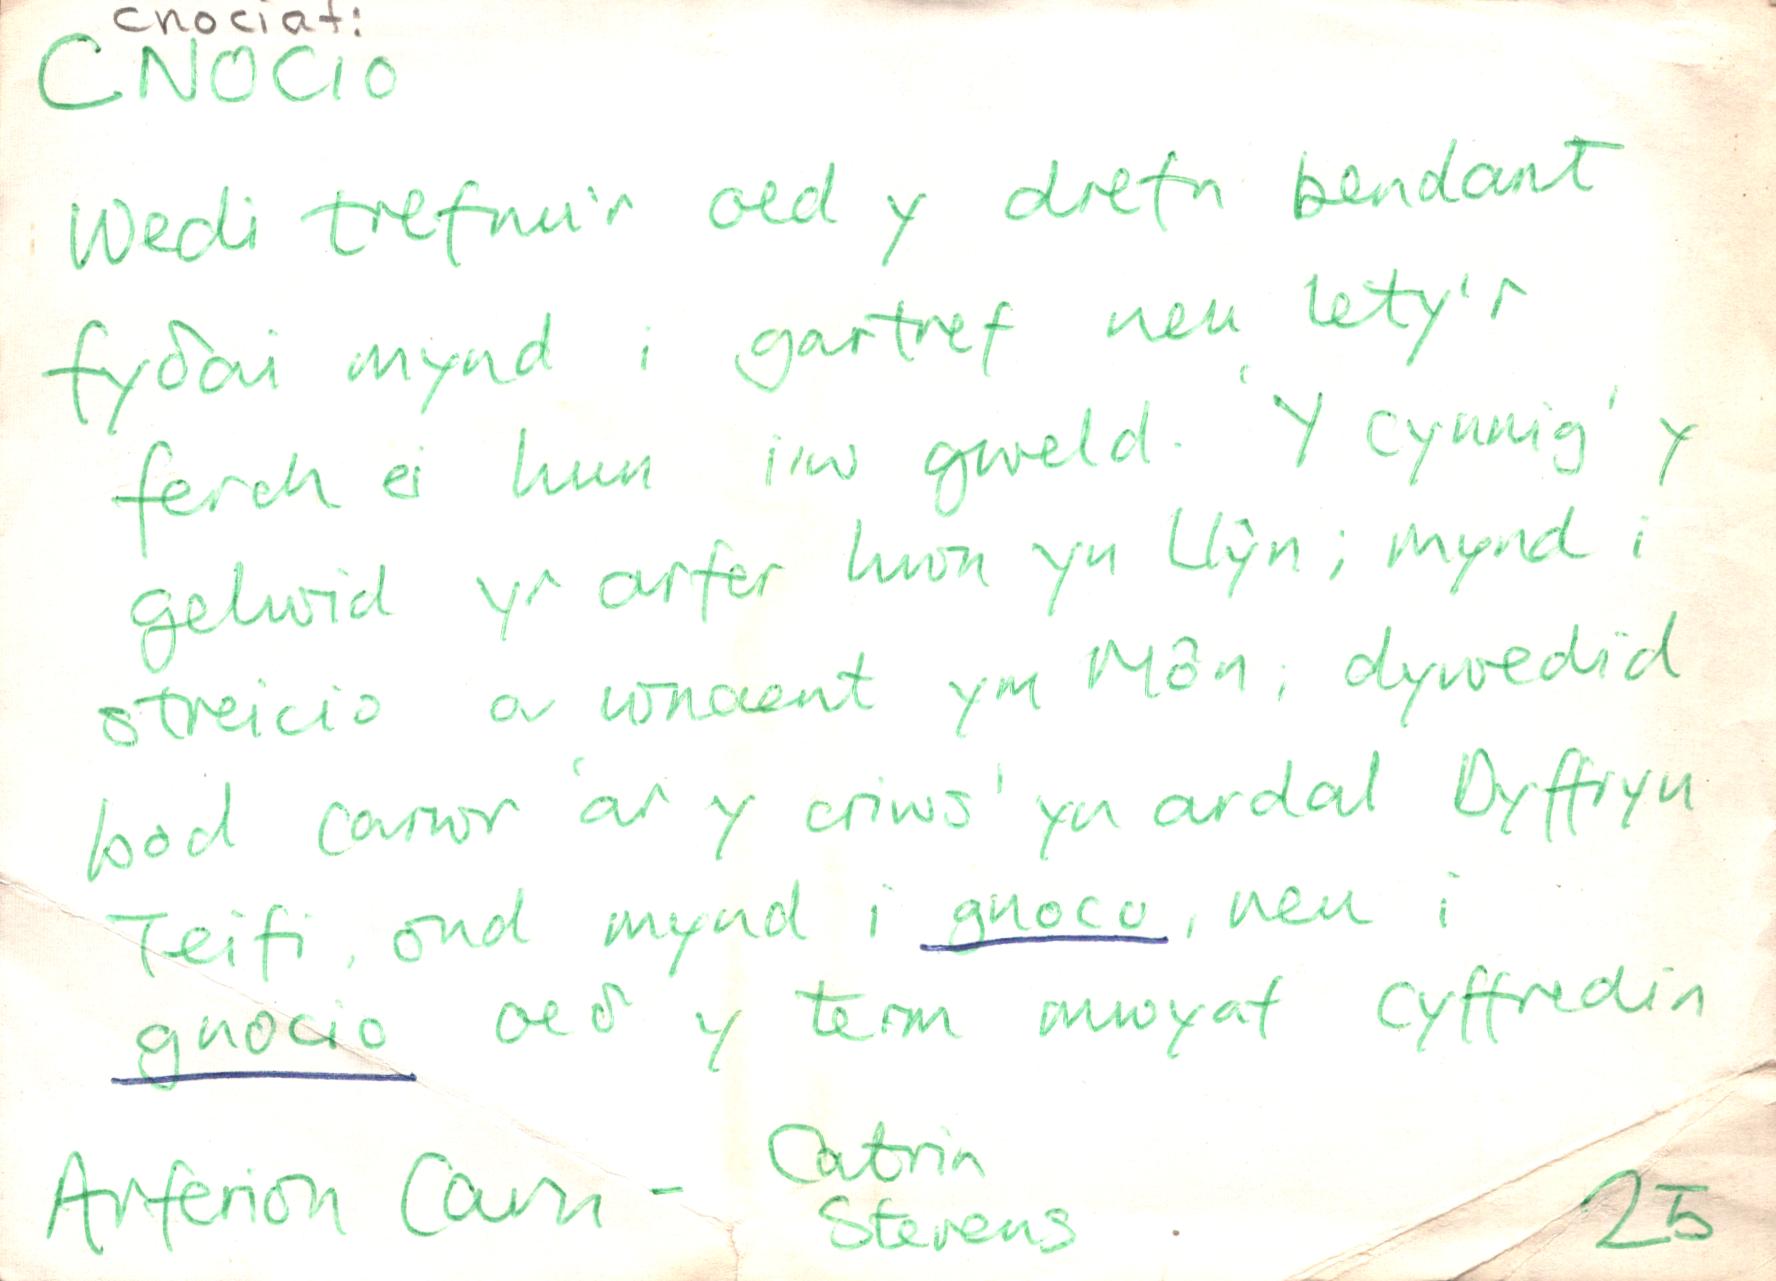 cnociaf:
CNOCIO
Wedi trefnu'r oed y drefn bendant
fyδai mynd i gartref neu lety'r
ferch ei hun i'w gweld. 'Y cynnig' y
gelwid yr arfer hwn yn Llŷn; mynd i
streicio a wnaent ym Môn; dywedid
bod carwr 'ar y criws' yn ardal Dyffryn
Teifi, ond mynd i gnoco, neu i
gnocio oeδ y term mwyaf cyffredin
Arferion Caru - Catrin
Stevens
25